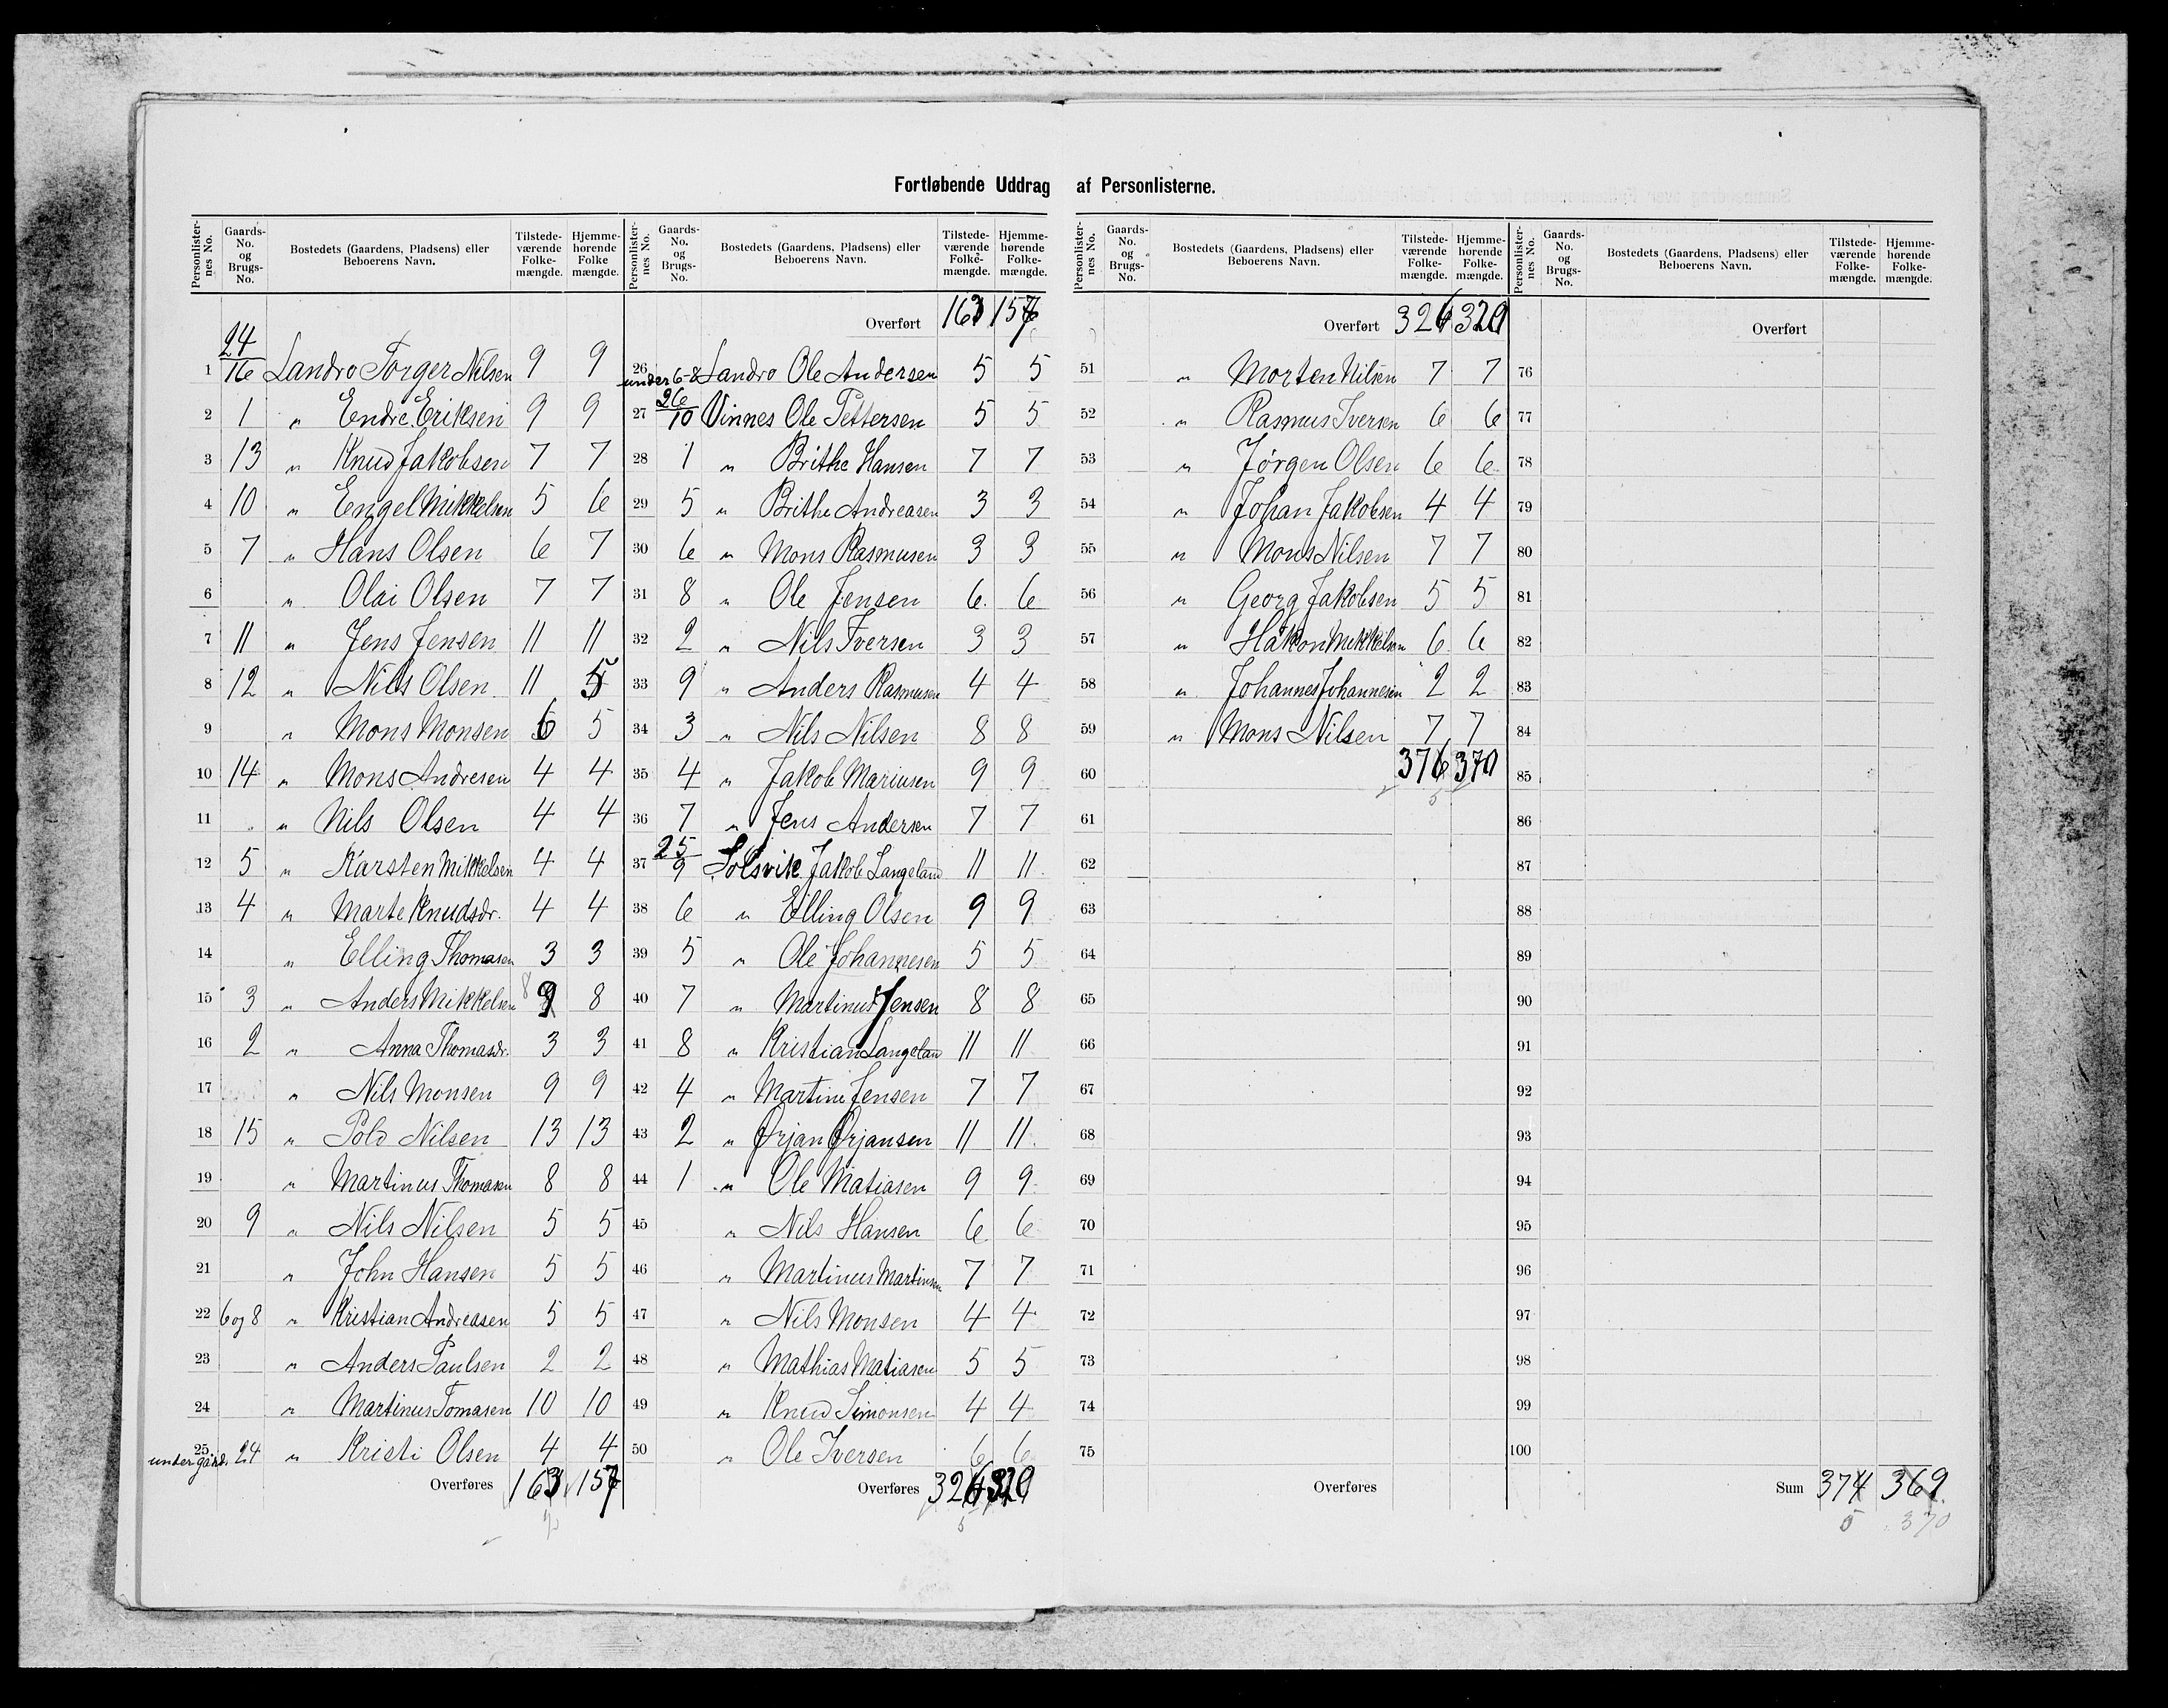 Fortløbende Uddrag af Personlisterne.
Personlister-nes No. | Gaards-No. og Brugs-No. | Bostedets (Gaardens, Pladsens) eller Beboerens Navn. | Tilstede-værende Folke-mængde. | Hjemme-hørende Folke mængde.
1 | 24/16 | Landro Torger Nilsen | 9 | 9
2 | 1 | " Endre Eriksen | 9 | 9
3 | 13 | " Knud Jakobsen | 7 | 7
4 | 10 | " Engel Mikkelsen | 5 | 6
5 | 7 | " Hans Olsen | 6 | 7
6 | " Olai Olsen | 7 | 7
7 | 11 | " Jens Jensen | 11 | 11
8 | 12 | " Nils Olsen | 11 | 5
9 | " Mons Monsen | 6 | 5
10 | 14 | " Mons Andresen | 4 | 4
11 | " Nils Olsen | 4 | 4
12 | 5 | " Karsten Mikkelsen | 4 | 4
13 | 4 | " Marte Knudsdr. | 4 | 4
14 | " Elling Thomasen | 3 | 3
15 | 3 | " Anders Mikkelsen | 8 9 | 8
16 | 2 | " Anna Thomasdr. | 3 | 3
17 | " Nils Monsen | 9 | 9
18 | 15 | " Polo Nilsen | 13 | 13
19 | " Martinus Thomasen | 8 | 8
20 | 9 | " Nils Nilsen | 5 | 5
21 | " John Hansen | 5 | 5
22 | 6 og 8 | " Kristian Andreasen | 5 | 5
23 | " Anders Paulsen | 2 | 2
24 | " Martinus Tomasen | 10 | 10
25 | under gård. 24 | " Kristi Olsen | 4 | 4
Overføres | 163 | 157
Personlister-nes No. | Gaards-No. og Brugs-No. | Bostedets (Gaardens, Pladsens) eller Beboerens Navn. | Tilstede-værende Folke-mængde. | Hjemme-hørende Folke-mængde.
Overført | 163 | 157
26 | under 6-8 | Landro Ole Andersen | 5 | 5
27 | 26/10 | Vinnes Ole Pettersen | 5 | 5
28 | 1 | " Brithe Hansen | 7 | 7
29 | 5 | " Brithe Andreasen | 3 | 3
30 | 6 | " Mons Rasmusen | 3 | 3
31 | 8 | " Ole Jensen | 6 | 6
32 | 2 | " Nils Iversen | 3 | 3
33 | 9 | " Anders Rasmusen | 4 | 4
34 | 3 | " Nils Nilsen | 8 | 8
35 | 4 | " Jakob Mariusen | 9 | 9
36 | 7 | " Jens Andersen | 7 | 7
37 | 25/9 | Solsvik Jakob Langeland | 11 | 11
38 | 6 | " Elling Olsen | 9 | 9
39 | 5 | " Ole Johannesen | 5 | 5
40 | 7 | " Martinus Jensen | 8 | 8
41 | 8 | " Kristian Langeland | 11 | 11
42 | 4 | " Martine Jensen | 7 | 7
43 | 2 | " Ørjan Ørjansen | 11 | 11
44 | 1 | " Ole Matiasen | 9 | 9
45 | " Nils Hansen | 6 | 6
46 | " Martinus Martinsen | 7 | 7
47 | " Nils Monsen | 4 | 4
48 | " Mathias Matiasen | 5 | 5
49 | " Knud Simonsen | 4 | 4
50 | " Ole Iversen | 6 | 6
Overføres | 326 | 320
5
Personlister-nes No. | Gaards-No. og Brugs-No. | Bostedets (Gaardens, Pladsens) eller Beboerens Navn. | Tilstede-værende Folke-mængde. | Hjemme-hørende Folke-mængde.
Overført | 326 | 320
51 | " Morten Nilsen | 7 | 7
52 | " Rasmus Iversen | 6 | 6
53 | " Jørgen Olsen | 6 | 6
54 | " Johan Jakobsen | 4 | 4
55 | " Mons Nilsen | 7 | 7
56 | " Georg Jakobsen | 5 | 5
57 | " Håkon Mikkelsen | 6 | 6
58 | " Johannes Johannesen | 2 | 2
59 | " Mons Nilsen | 7 | 7
60 | 376 | 370
5
61
62
63
64
65
66
67
68
69
70
71
72
73
74
75
Overføres
Personlister-nes No. | Gaards-No. og Brugs-No. | Bostedets (Gaardens, Pladsens) eller Beboerens Navn. | Tilstede-værende Folke-mængde. | Hjemme-hørende Folke-mængde.
Overført
76
77
78
79
80
81
82
83
84
85
86
87
88
89
90
91
92
93
94
95
96
97
98
99
100
Sum | 374 | 369
5 | 370